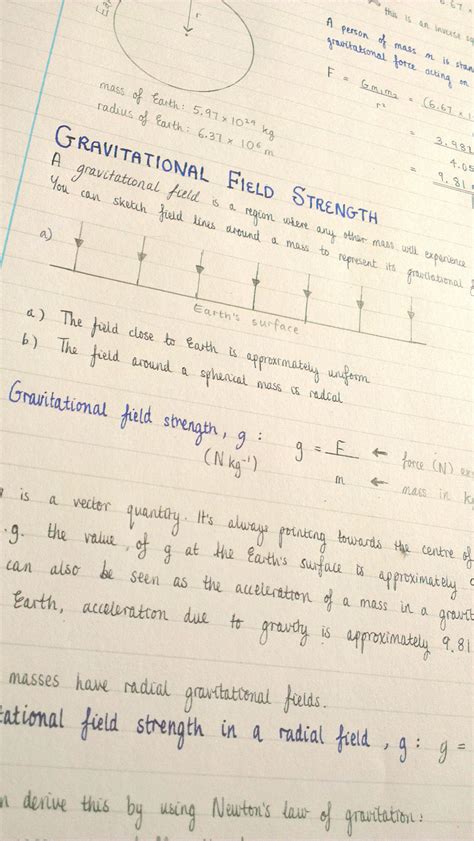 this is an inverse
A person of mass m is stan
gravitational force acting on
F = Gm₁m₂ = (6.67 × 1
r²
= 3.981
4.05
= 9.81
r
mass of Earth: 5.97 × 10²⁴ kg
radius of Earth: 6.37 × 10⁶ m
GRAVITATIONAL FIELD STRENGTH
A gravitational field is a region where any other mass will experience
You can sketch field lines around a mass to represent its gravitational f
a)
Earth's surface
a) The field close to Earth is approximately uniform
b) The field around a spherical mass is radial
Gravitational field strength, g : g = F ← force (N) ex
(N kg⁻¹) m ← mass in k
is a vector quantity. It's always pointing towards the centre of
.g. the value of g at the Earth's surface is approximately
can also be seen as the acceleration of a mass in a gravit
Earth, acceleration due to gravity is approximately 9.81
masses have radial gravitational fields.
tational field strength in a radial field , g : g =
n derive this by using Newton's law of gravitation: